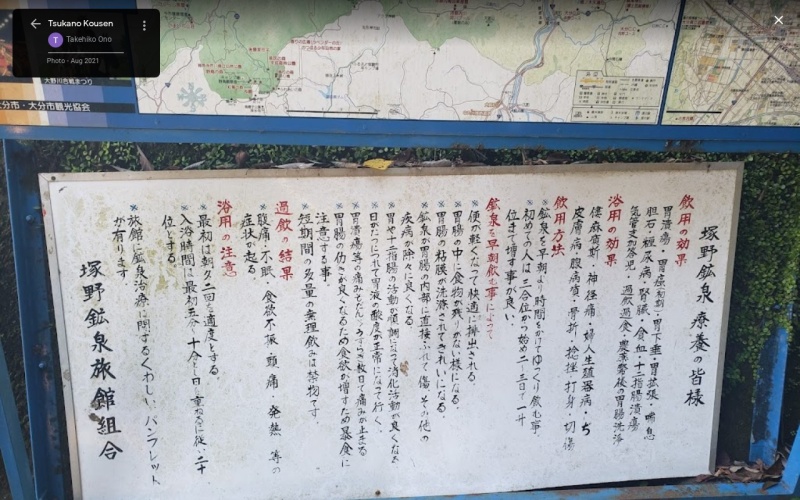 Tsukano Kousen
Takehiko Ono
Photo - Aug 2021
大野川合戦まつり
大分市・大分市観光協会
塚野鉱泉 療養の皆様
飲用の効果
胃潰瘍・胃症初期・胃下垂・胃拡張・喘息
胆石・糖尿病・腎臓・貧血・十二指腸潰瘍
過飲過食・農薬 胃腸洗浄
浴用の効果
僂麻質斯・神経痛・婦人生殖器病・ぢ
皮膚病・腺病質・骨折・捻挫・打身・切傷
飲用方法
鉱泉を早朝より時間をかけてゆっくり飲む事。
初めての人は二合位から始め二~三日で一升
位まで増す事が良い。
鉱泉を早朝飲む事によって
※便が軽くなって快適に排出される。
※胃腸の中に食物が残りない様になる。
※胃腸の粘膜が洗滌されてきれいになる。
※鉱泉が胃腸の内部に直接ふれて傷、その他の
疾病が除々に良くなる。
※胃や十二指腸の活動が順調になって消化活動が良くなる
※日がたつにつれて胃液の酸度が正常になって行く。
※胃潰瘍等の痛みもだんだんうすらぎ数日で痛みが止まる
※胃腸の働きが良くなるため食欲が増すため暴食に
注意する事。
※短期間の多量の無理飲みは禁物です。
過飲の結果
※腹痛・不眠・食欲不振・頭痛・発熱 等の
症状が起る。
浴用の注意
※最初は朝夕二回を適度とする。
※入浴時間は最初五分~十分とし日を重ねるに従い二十
位とする。
※旅館に鉱泉治療に関するくわしいパンフレット
が有ります
塚野鉱泉旅館組合